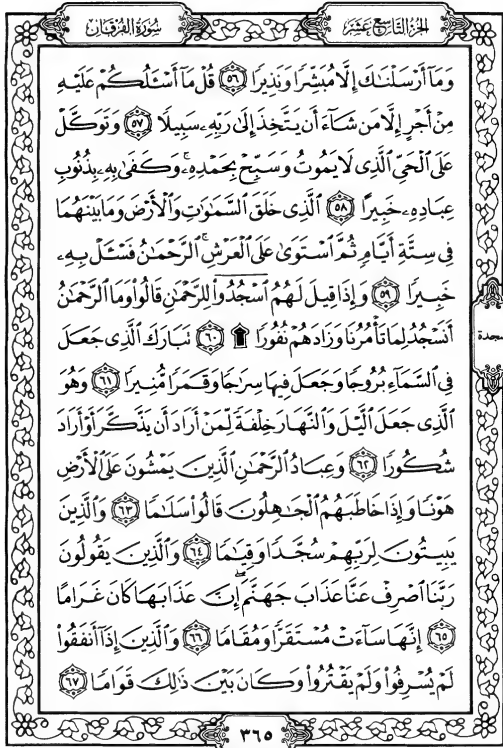 الجزء التاسع عشر
سورة الفرقان
وَمَآ أَرْسَلْنَٰكَ إِلَّا مُبَشِّرًا وَنَذِيرًا ٥٦ قُلْ مَآ أَسْـَٔلُكُمْ عَلَيْهِ
مِنْ أَجْرٍ إِلَّا مَن شَآءَ أَن يَتَّخِذَ إِلَىٰ رَبِّهِۦ سَبِيلًا ٥٧ وَتَوَكَّلْ
عَلَى ٱلْحَىِّ ٱلَّذِى لَا يَمُوتُ وَسَبِّحْ بِحَمْدِهِۦ ۚ وَكَفَىٰ بِهِۦ بِذُنُوبِ
عِبَادِهِۦ خَبِيرًا ٥٨ ٱلَّذِى خَلَقَ ٱلسَّمَٰوَٰتِ وَٱلْأَرْضَ وَمَا بَيْنَهُمَا
فِى سِتَّةِ أَيَّامٍ ثُمَّ ٱسْتَوَىٰ عَلَى ٱلْعَرْشِ ۚ ٱلرَّحْمَٰنُ فَسْـَٔلْ بِهِۦ
خَبِيرًا ٥٩ وَإِذَا قِيلَ لَهُمُ ٱسْجُدُوا۟ لِلرَّحْمَٰنِ قَالُوا۟ وَمَا ٱلرَّحْمَٰنُ
أَنَسْجُدُ لِمَا تَأْمُرُنَا وَزَادَهُمْ نُفُورًا ۩ ٦٠ تَبَارَكَ ٱلَّذِى جَعَلَ
سجدة
فِى ٱلسَّمَآءِ بُرُوجًا وَجَعَلَ فِيهَا سِرَٰجًا وَقَمَرًا مُّنِيرًا ٦١ وَهُوَ
ٱلَّذِى جَعَلَ ٱلَّيْلَ وَٱلنَّهَارَ خِلْفَةً لِّمَنْ أَرَادَ أَن يَذَّكَّرَ أَوْ أَرَادَ
شُكُورًا ٦٢ وَعِبَادُ ٱلرَّحْمَٰنِ ٱلَّذِينَ يَمْشُونَ عَلَى ٱلْأَرْضِ
هَوْنًا وَإِذَا خَاطَبَهُمُ ٱلْجَٰهِلُونَ قَالُوا۟ سَلَٰمًا ٦٣ وَٱلَّذِينَ
يَبِيتُونَ لِرَبِّهِمْ سُجَّدًا وَقِيَٰمًا ٦٤ وَٱلَّذِينَ يَقُولُونَ
رَبَّنَا ٱصْرِفْ عَنَّا عَذَابَ جَهَنَّمَ ۖ إِنَّ عَذَابَهَا كَانَ غَرَامًا
٦٥ إِنَّهَا سَآءَتْ مُسْتَقَرًّا وَمُقَامًا ٦٦ وَٱلَّذِينَ إِذَآ أَنفَقُوا۟
لَمْ يُسْرِفُوا۟ وَلَمْ يَقْتُرُوا۟ وَكَانَ بَيْنَ ذَٰلِكَ قَوَامًا ٦٧
٣٦٥